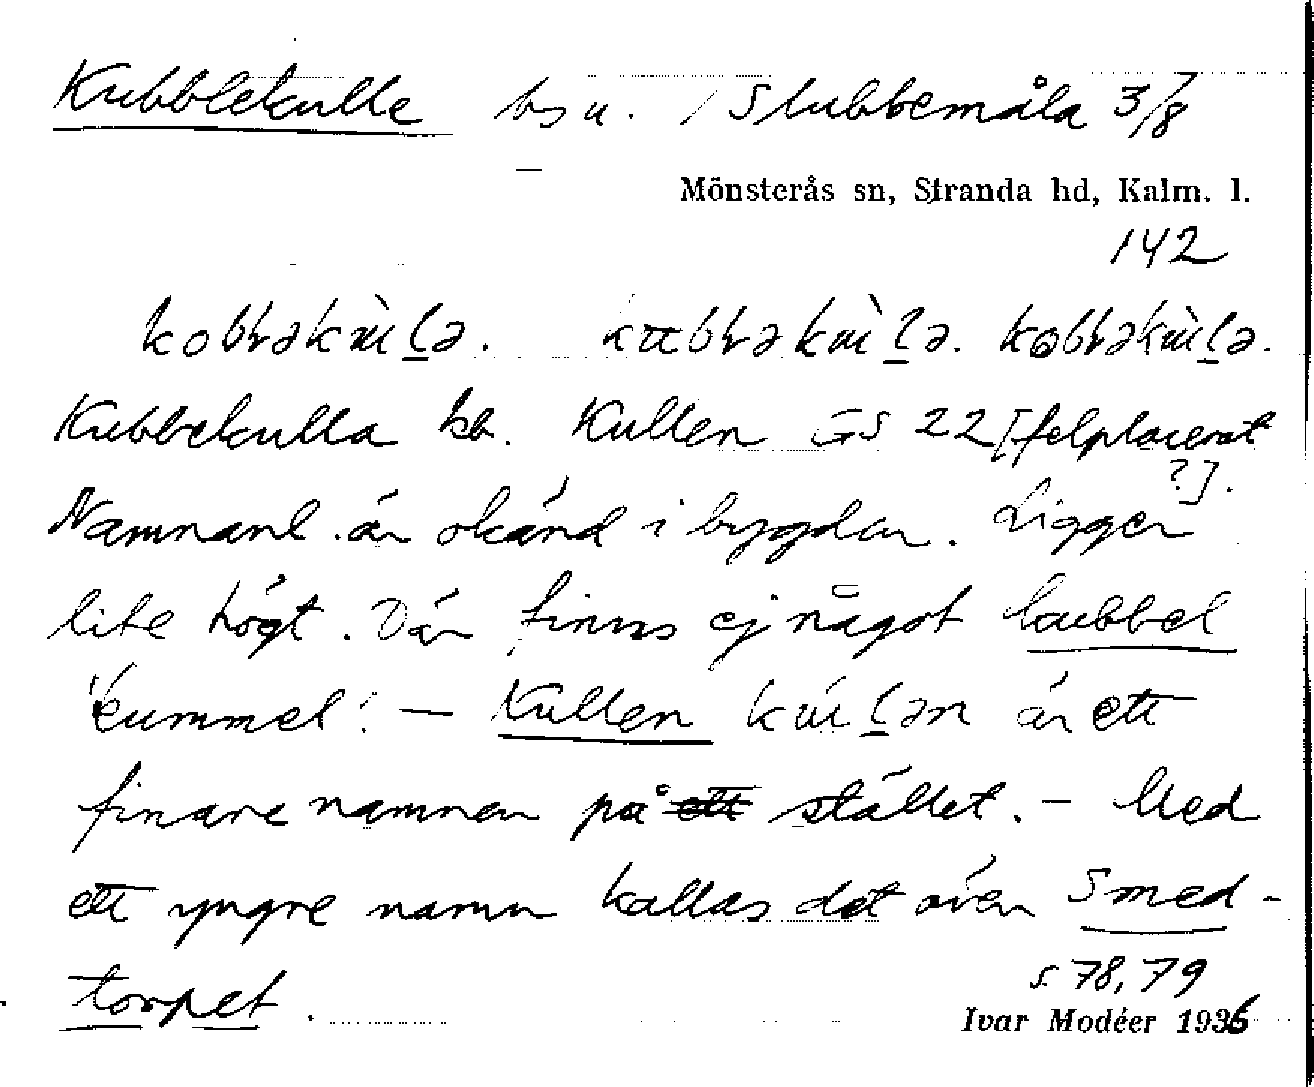 Kubblekulle bs u. / Slubbemåla 3/8
Mönsterås sn, Stranda hd, Kalm. l.
142
Kubbekulla kb. Kullen GS 22 [felplacerat
?].
Namnant. är okänd i bygden. Ligger
lite högt. Där finns ej något kubbel
'kummel'. — Kullen är ett
finare namnen på ett stället. – Med
ett yngre namn kallas det även Smed-
torpet.
s. 78, 79
Ivar Modéer 1936